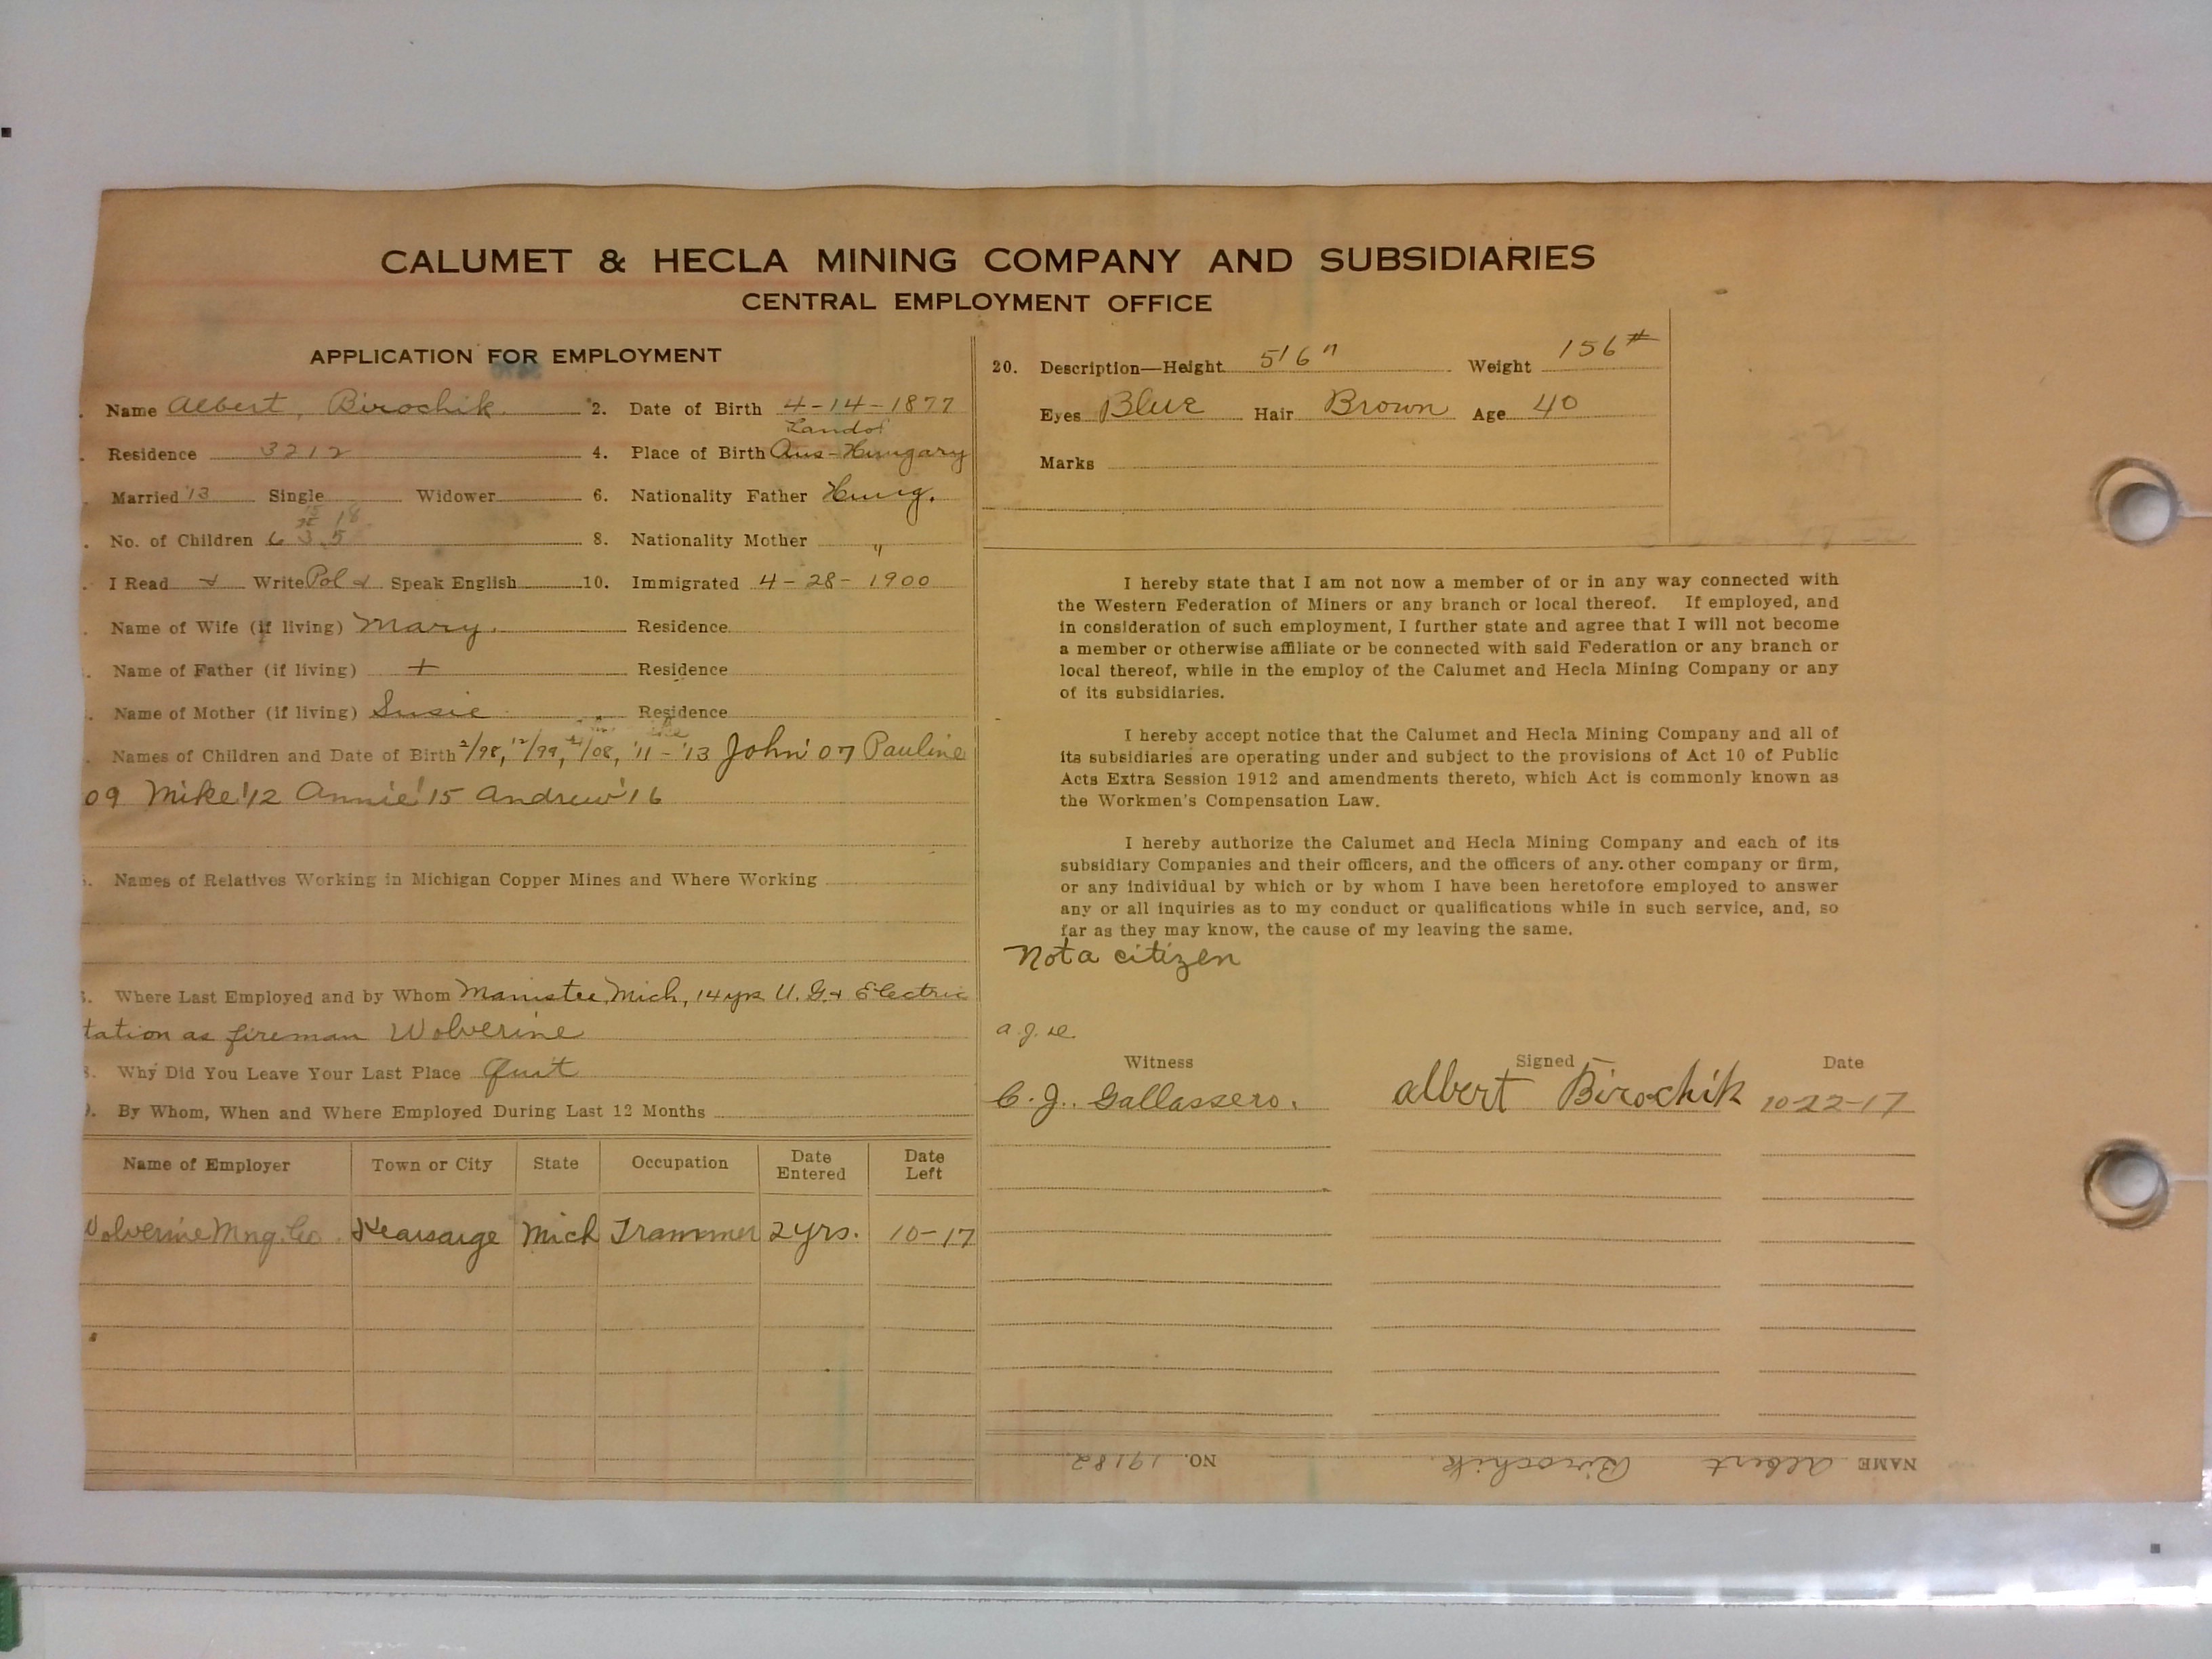 CALUMET & HECLA MINING COMPANY AND SUBSIDIARIES
CENTRAL EMPLOYMENT OFFICE
APPLICATION FOR EMPLOYMENT
. Name Albert, Birochik. 2. Date of Birth 4-14-1877
. Residence 3212 4. Place of Birth Aus-Hungary
. Married '13 Single Widower 6. Nationality Father Hung.
. No. of Children 6 3 5 18 8. Nationality Mother "
. I Read Write Pol Speak English 10. Immigrated 4-28-1900
. Name of Wife (if living) Mary. Residence
. Name of Father (if living) + Residence
. Name of Mother (if living) Susie Residence
. Names of Children and Date of Birth 2/98, 12/99, /08, '11-'13 John '07 Pauline
09 Mike '12 Annie '15 Andrew '16
. Names of Relatives Working in Michigan Copper Mines and Where Working
. Where Last Employed and by Whom Manistee, Mich, 14 yrs U.G. + Electric
tation as fireman Wolverine
. Why Did You Leave Your Last Place Quit
. By Whom, When and Where Employed During Last 12 Months
Name of Employer Town or City State Occupation Date Entered Date Left
Wolverine Mng. Co. Kearsarge Mich Trammer 2 yrs. 10-17
20. Description—Height 5'6" Weight 156#
Eyes Blue Hair Brown Age 40
Marks
I hereby state that I am not now a member of or in any way connected with
the Western Federation of Miners or any branch or local thereof. If employed, and
in consideration of such employment, I further state and agree that I will not become
a member or otherwise affiliate or be connected with said Federation or any branch or
local thereof, while in the employ of the Calumet and Hecla Mining Company or any
of its subsidiaries.
I hereby accept notice that the Calumet and Hecla Mining Company and all of
its subsidiaries are operating under and subject to the provisions of Act 10 of Public
Acts Extra Session 1912 and amendments thereto, which Act is commonly known as
the Workmen's Compensation Law.
I hereby authorize the Calumet and Hecla Mining Company and each of its
subsidiary Companies and their officers, and the officers of any other company or firm,
or any individual by which or by whom I have been heretofore employed to answer
any or all inquiries as to my conduct or qualifications while in such service, and, so
far as they may know, the cause of my leaving the same.
Not a citizen
Witness Signed Date
C. J. Gallassero. Albert Birochik 10-22-17
NAME Albert Birochik. NO. 19182